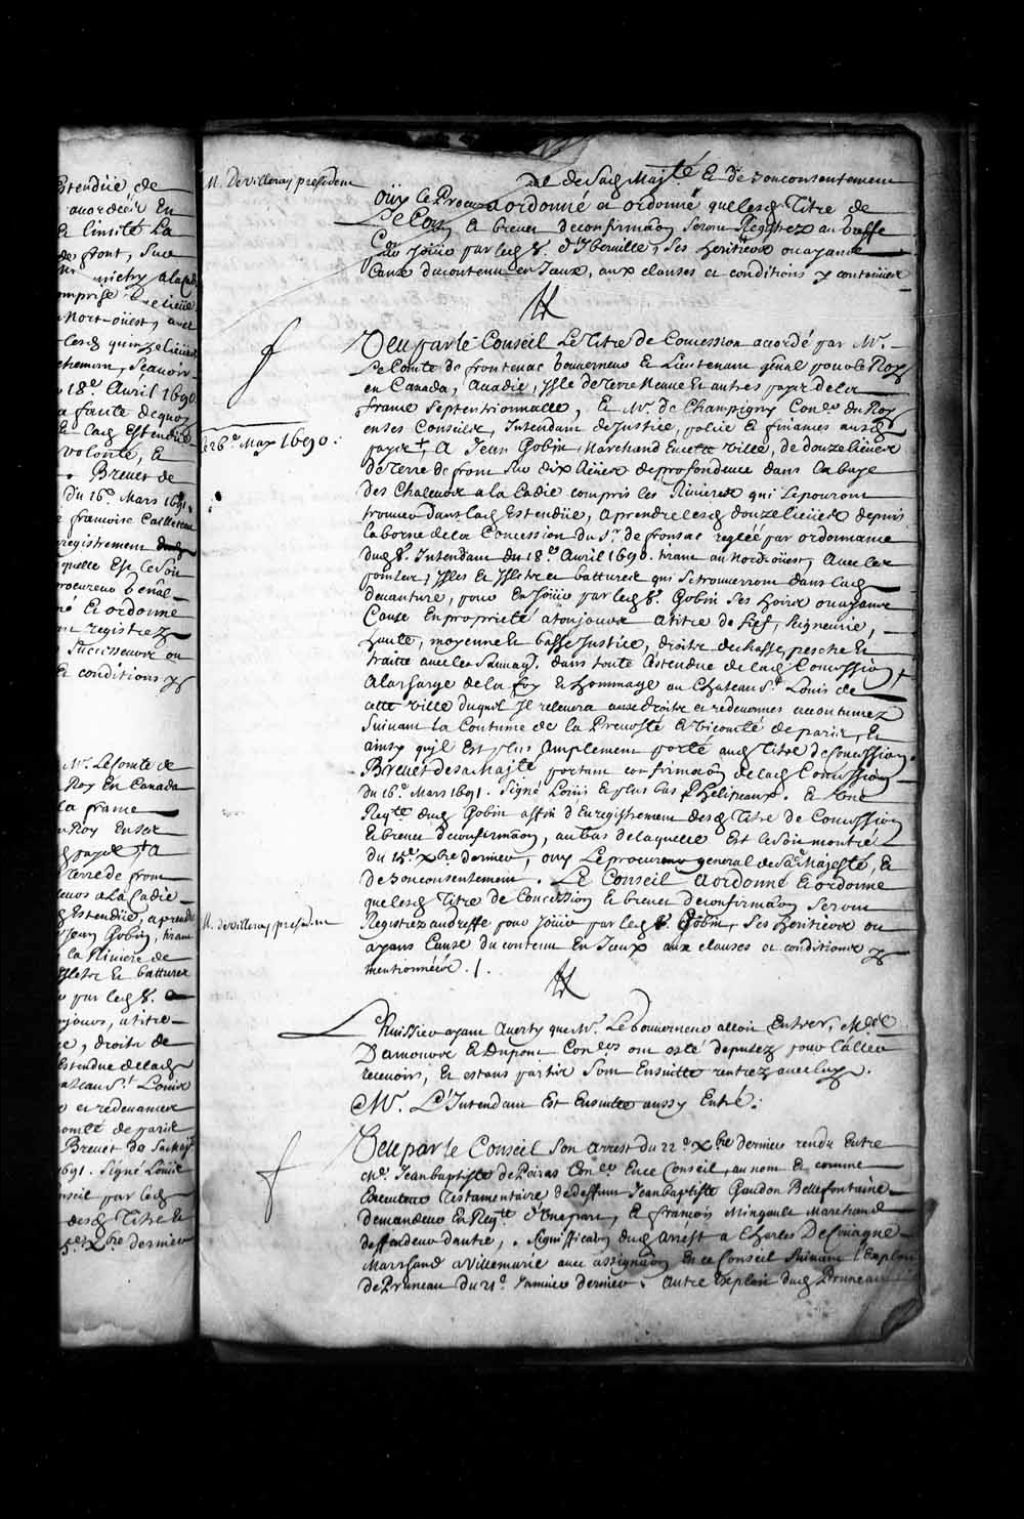 Estendüe, de
accordée En
Et
La
de front, sur
Nort-oüest, avec
lesd quinze lieües
18.e Avril 1690
a faute dequoy
Et lad Estendüe
volonté, Et
Brevet de
du 16.e Mars 1691.
françoise Cailleteau
registrement
quelle Est le soit
procureur Général
né Et ordonne
registrez
successeurs ou
Et conditions y
Mr. Le Comte de
Roy En Canada
la france
Roy En ses
pays + A
Terre de front
a La Cadie
Estendüe, a prendre
Jean Gobin, tirant
la Riviere de
Et batturez
par led Sr.
jours, a titre
droits de
Estendue de lad
St. Louis
et redevances
de paris
Brevet de sa
1691. Signé Louis
par led
desd Titre Et
Xbre dernier
M. De villeray president
de sad Maj.té Et de son consentement
Oüy le Procur
Le Con a ordonné et ordonne que lesd Titre de
Et brevet de confirmaon seront Registrez au Greffe
Pour Joüir par led Sr. d'Iberuille, Ses heritiers ou ayans
Cause du contenu en Iceux, aux clauses et conditions y contenües
Veu par le Conseil Le Titre de Concession accordé par Mr.
Le Comte de frontenac Gouverneur Et Lieutenant gñal pour le Roy
en Canada, Acadie, Isle de Terre Neuve Et autres pays de la
france Septentrionnalle, Et Mr. de Champigny Con.er du Roy
en ses Conseils, Intendant de Justice, police Et finances aud
pays + A Jean Gobin Marchand En cette Ville, de douze lieües
de Terre de front sur dix lieües de profondeur dans la baye
des Chaleurs a la Cadie compris les Rivieres qui se pouront
trouver dans lad Estendüe, a prendre lesd douze lieües depuis
la borne de la Concession du Sr. de fronsac reglée par ordonnance
dud Sr. Intendant du 18.e Avril 1690. tirant au nordoüest, Avec les
pointes, Isles Et Islets et battures qui se trouveront dans lad
devanture, pour En Joüir par led Sr. Gobin ses hoirs ou ayans
Cause En proprieté a toujours a titre de fief, Seigneurie,
haute, moyenne Et basse Justice, droits de chasse, pesche Et
traitte avec les Sauvag. dans toute l'estendue de lad Concession +
A la charge de la foy Et hommage au Chateau St. Louis de
cette ville duquel Il relevera aux droits et redevances accoutumez
suivant la Coutume de la Prevosté et Vicomté de paris, Et
ainsy qu'il Est plus amplement porté aud Titre de Concession.
Brevet de sa Maj.té portant confirmaon de lad Concession
du 16.e Mars 1691. Signé Louis Et plus bas Phelipeaux. Et Une
Req.te dud Gobin affin d'Enregistrement desd Titre de Concession
Et brevet de confirmaon, au bas de laquelle Est le Soit montré
du 15.e Xbre dernier, oüy Le procureur general de Sa Majesté, Et
de son consentement. Le Conseil A ordonné Et ordonne
que lesd Titre de Concession Et brevet de confirmaon seront
Registrez au Greffe pour Joüir par led Sr. Gobin, Ses heritiers ou
ayans Cause du contenu En Iceux aux clauses et conditions y
mentionnées. /.
Le 26.e May 1690:
M. de villeray president
L'huissier ayant Averty que Mr. Le Gouverneur alloit Entrer, M.es
Damours Et Dupont Con.ers ont esté deputez pour l'aller
recevoir, Et estans partis sont Ensuitte rentrez avec luy.
Mr. L'Intendant Est Ensuitte aussy Entré.
Veu par le Conseil Son Arrest du 22.e Xbre dernier rendu Entre
Me. Jean baptiste de Peiras Con.er En ce Conseil, au nom Et comme
Executeur Testamentaire de deffunt Jean baptiste Gaudon Bellefontaine
demandeur En Req.te d'Une part, Et françois Mingoult Marchand
deffendeur d'autre, Significaon dud Arrest a Charles
Marchand a Villemarie avec assignaon En ce Conseil suivant l'Exploit
de Pruneau du 21.e Janvier dernier. Autre Exploit dud Pruneau